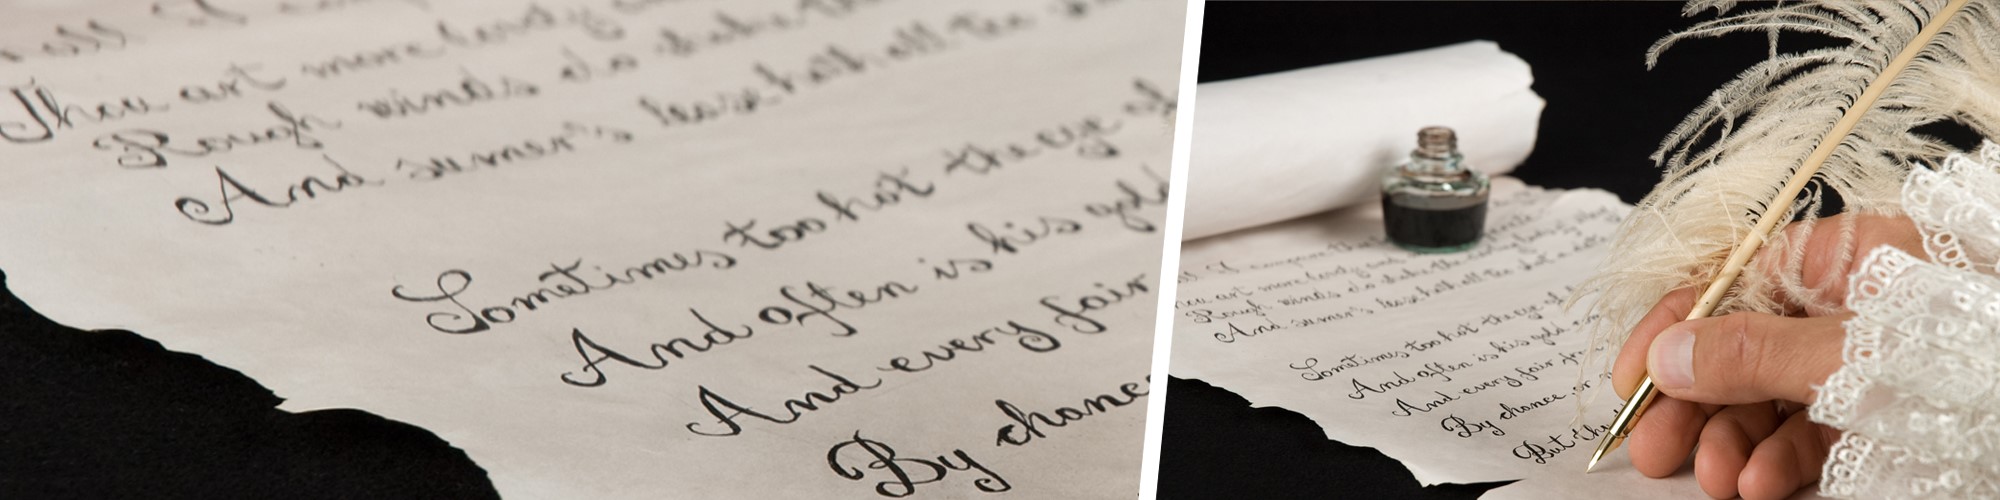 Thou art more lovely
Rough winds do shake the
And sumer's lease hath all too
Sometimes too hot the eye of
And often is his gold
And every fair
By chance
all I compare
hou art more lovely and
Rough winds do shake the
And sumer's lease hath all too short a date
Sometimes too hot the eye of
And often is his gold
And every fair
By chance or
But thy